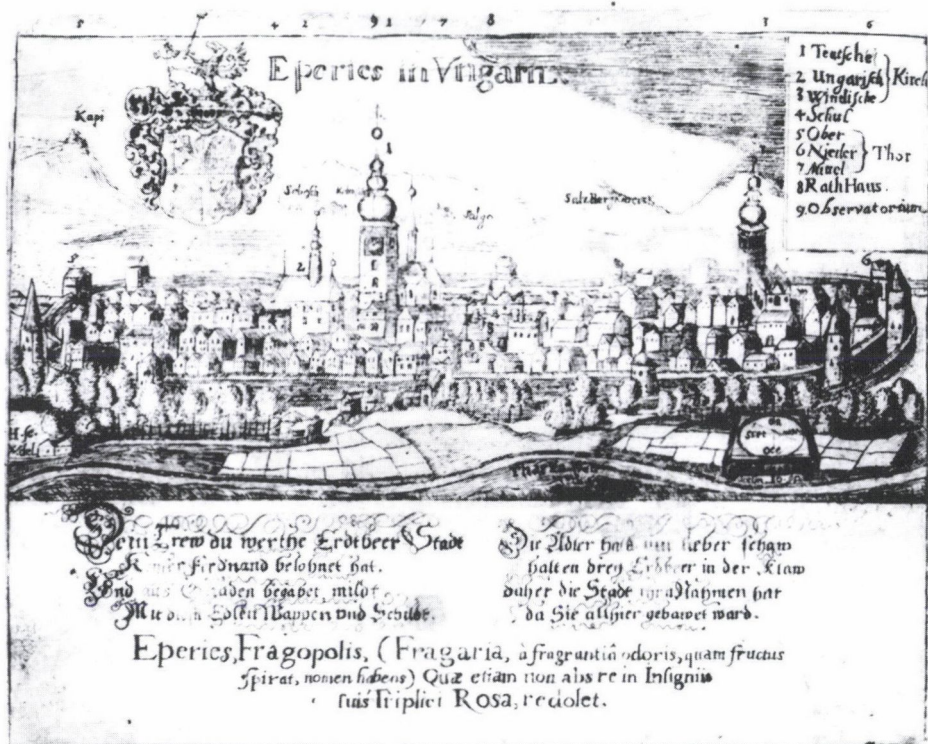 5 4 2 9 1 7 8 3 6
Eperies in Vngarn.
1 Teutsche
2 Ungarisch } Kirch
3 Windische
4 Schul
5 Ober
6 Nieder } Thor
7 Mittel
8 RathHaus.
9. Observatorium
Kapi
Schloss
Salgo
SaltzBerg
1
2
3
5
6
Dein Trew du werthe Erdtbeer Stadt
Ferdinand belohnet hat.
Vnd aus begabet milpt
Mit Edlen Wappen vnd Schildt.
Die Adler lieber scham
halten drey Erdtbeer in der Klaw
daher die Stadt Nahmen hat
da Sie allhier gebawet ward.
Eperies, Fragopolis, (Fragaria, à fragrantiâ odoris, quam fructus
spirat, nomen habens) Quæ etiam non abs re in Insigniis
suis Triplici Rosa, redolet.